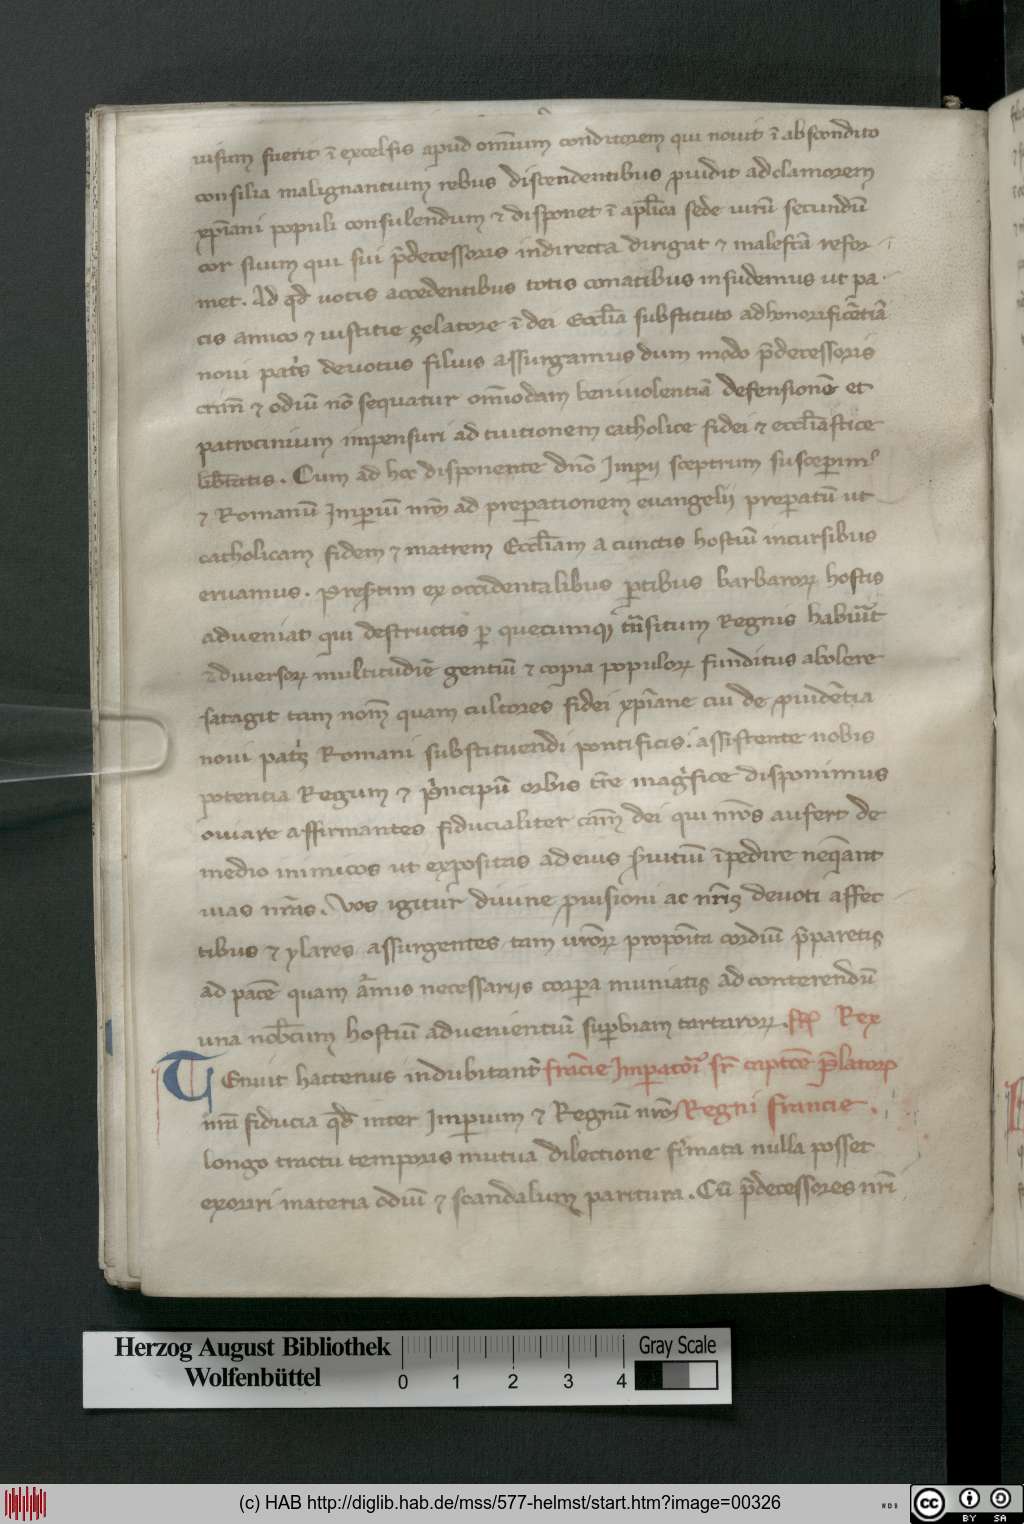 uisum fuerit ī excelsis apud om̄ium conditorem qui nouit ī abscondito
consilia malignantium rebus distendentibus prouidit ad clamorem
xp̄iani populi consulendum ⁊ disponet ī ap̄lica sede uirū secundū
cor suum qui sui p̄decessoris indirecta dirigat ⁊ malefc̄a refor
met. Ad qd̄ uotis accedentibus totis conatibus insudemus ut pa
cis amico ⁊ iustitie zelatore ī dei Eccl̄ia substituto ad honorificētiā
noui pat̄s deuotus filius assurgamus dum modo p̄decessoris
⁊ odiū nō sequatur om̄iodam beniuolentiā defensionē et
patrocinium impensuri ad tuitionem catholice fidei ⁊ eccl̄iastice
lib̄tatis. Cum ad hec disponente dn̄o Imp̄ij sceptrum suscep̄im⁹
⁊ Romanū Imp̄iū nr̄m ad prep̄ationem euangelij prep̄atū ut
catholicam fidem ⁊ matrem Eccl̄iam a cunctis hostiū incursibus
eruamus. Pres̄tim ex occidentalibus p̄tibus barbaroꝝ hostis
adueniat qui destructis ꝑ quecumqꝫ tn̄situm Regnis habūit
⁊ diuersoꝝ multitudiē gentiū ⁊ copia populoꝝ funditus abolere
satagit tam nom̄ quam cultores fidei xp̄iane cui de prouidētia
noui pat̄s Romani substituendi pontificis. assistente nobis
potentia Regum ⁊ p̄ncipū orbis tr̄e mag̓fice disponimus
ouiare affirmantes fiducialiter dei qui nr̄os aufert de
medio inimicos ut expositas ad eius s̄uitiū īpedire neq̄ant
uias nr̄as. Vos igitur diuine prouisioni ac nr̄is deuoti affec
tibus ⁊ ylares assurgentes tam ur̄oꝝ propōita cordiū p̄paretis
ad pacē quam armis necessarijs corp̄a muniatis ad conterendū
una nob̄cum hostiū aduenientiū sup̄biam tartaroꝝ. Rex
TEnuit hactenus indubitant̄ francie Imp̄atori p̄latorꝝ
nr̄a fiducia qd̄ inter Imp̄ium ⁊ Regnū nr̄m Regni francie.
longo tractu temporis mutua dilectione firmata nulla posset
exoriri materia odiū ⁊ scandalum paritura. Cū p̄decessores nr̄i
Herzog August Bibliothek
Wolfenbüttel
0 1 2 3 4
Gray Scale
(c) HAB http://diglib.hab.de/mss/577-helmst/start.htm?image=00326
WDB
cc BY SA